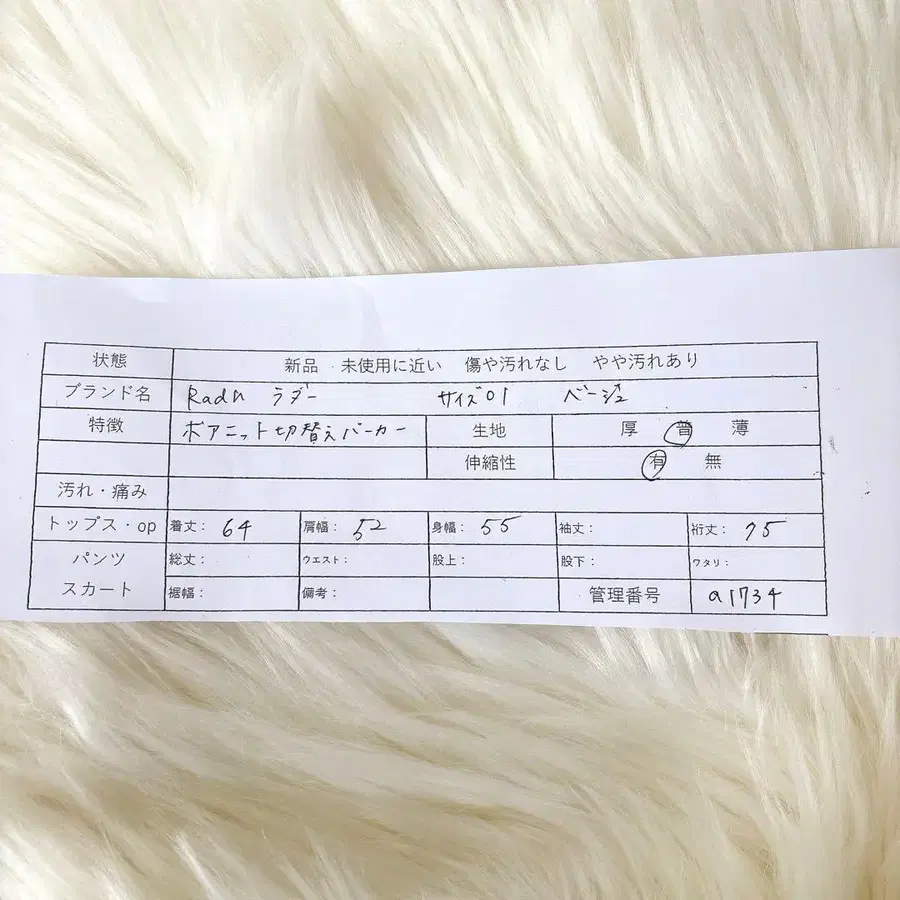 状態 新品 未使用に近い 傷や汚れなし やや汚れあり
ブランド名 Radh ラダー サイズ01 ベージュ
特徴 ボアニット切替えパーカー 生地 厚 普 薄
伸縮性 有 無
汚れ・痛み
トップス・op 着丈: 64 肩幅: 52 身幅: 55 袖丈: 裄丈: 75
パンツ 総丈: ウエスト: 股上: 股下: ワタリ:
スカート 裾幅: 備考: 管理番号 a1734